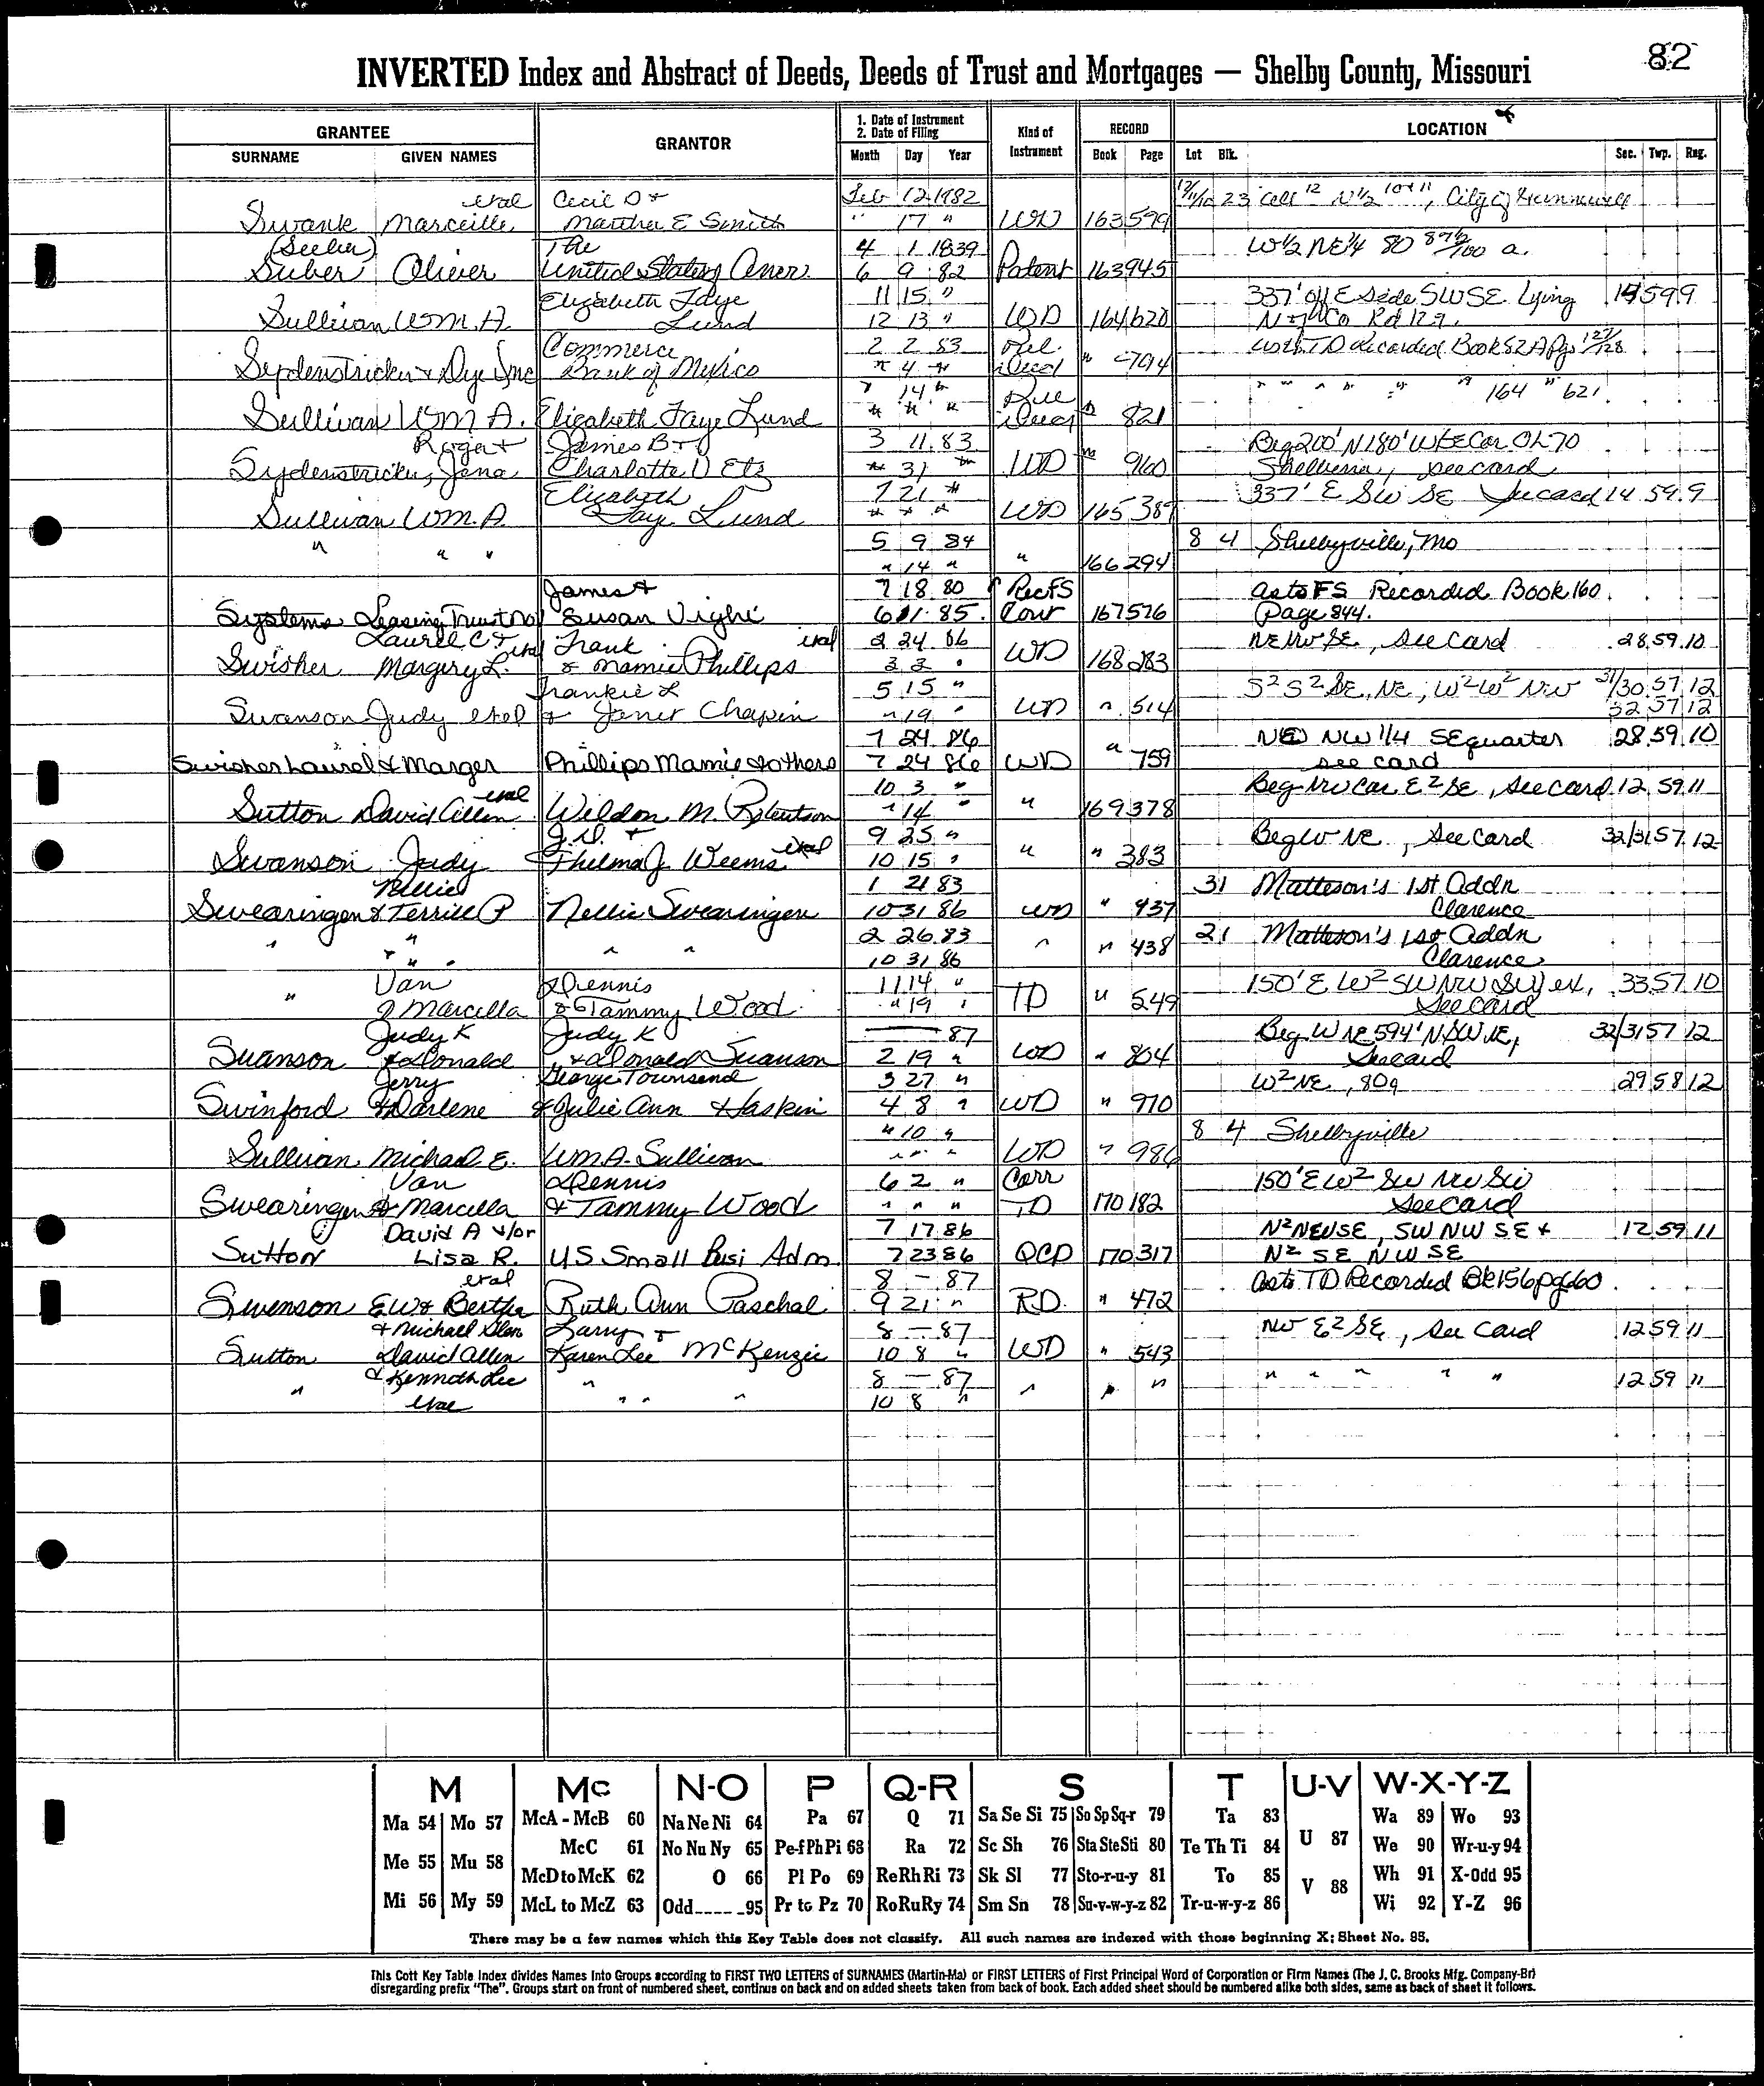 82
INVERTED Index and Abstract of Deeds, Deeds of Trust and Mortgages — Shelby County, Missouri
GRANTEE
SURNAME GIVEN NAMES
GRANTOR
1. Date of Instrument
2. Date of Filing
Month Day Year
Kind of Instrument
RECORD
Book Page
LOCATION
Lot Blk. Sec. Twp. Rng.
etal Cecil D & Feb 12 1982 23 N 1/2 10 & 11, City of Hunnewell
Swank Marceille Martha E Smith " 17 " WD 163 599
(Seeber) The 4 1 1839 W 1/2 NE 1/4 80 a.
Suber Oliver United States Amer. 6 9 82 Patent 163 945
Elizabeth Faye 11 15 " 337' off E side SWSE Lying 14 59 9
Sullivan WM. A. Lund 12 13 " WD 164 620 Co Rd 129.
Commerce 2 2 83 Rel. as to TD Recorded Book 82A Pgs 127/128
Sydenstricker & Dye Inc Bank of Mexico " 4 " deed " 794
" 14 " Rel " " " " " " 164 " 621
Sullivan WM A. Elizabeth Faye Lund " " " deed " 821
Roger & James B & 3 11 83 Beg 200' N 180' W SE Cor OL 70
Sydenstricker, Jena Charlotte D Etz " 31 " WD " 960 Shelbina, see card
Elizabeth 7 21 " 337' E SW SE See card 14 59 9
Sullivan WM. A. Faye Lund " " " WD 165 389
5 9 84 8 4 Shelbyville, Mo
" " " " 14 " " 166 294
James & 7 18 80 Rec FS as to FS Recorded Book 160
Systems Leasing Trust No1 Susan Vighi 6 11 85 Cour 167 576 page 844.
Laurel C & Frank etal 2 24 86 NE NW SE, see Card 28 59 10
Swisher Margery L. etal & Mamie Phillips 3 3 " WD 168 283
Frankie L 5 15 " S2 S2 SE, NE, W2 W2 NW 31/30 57 12
Swanson Judy etal & Janet Chapin " 19 " WD " 514 32 57 12
7 24 86 NE NW 1/4 SE quarter 28 59 10
Swisher Laurel & Marger Phillips Mamie & others 7 24 86 WD " 759 see card
etal 10 3 " Beg NW Cor E2 SE, see card 12 59 11
Sutton David Allen Weldon M. Robertson " 14 " " 169 378
J.D. & 9 25 " Beg W NE, see card 32/31 57 12
Swanson Judy Thelma J Weems etal 10 15 " " " 383
Nellie 1 21 83 31 Matteson's 1st Addn
Swearingen & Terrill P Nellie Swearingen 10 31 86 WD " 437 Clarence
" " 2 26 83 21 Matteson's 1st Addn
" " " " 10 31 86 " " 438 Clarence
Van Dennis 11 14 " 150' E W2 SW NW SW ex, 33 57 10
" & Marcella & Tammy Wood " 19 " TD " 549 See Card
Judy K Judy K — 87 Beg W NE 594' N SW NE, 32/31 57 12
Swanson & Donald & Donald Swanson 2 19 " WD " 804 see card
Jerry George Townsend 3 27 " W2 NE, 80a 29 58 12
Swinford & Darlene & Julie Ann Haskin 4 8 " WD " 970
" 10 " 8 4 Shelbyville
Sullivan Michael E. WM A. Sullivan " " " WD " 986
Van Dennis 6 2 " Corr 150' E W2 SW NW SW
Swearingen & Marcella & Tammy Wood " " " TD 170 182 see card
David A &/or 7 17 86 N2 NE NW SE, SW NW SE & 12 59 11
Sutton Lisa R. US Small Busi Adm 7 23 86 QCD 170 317 N2 SE NW SE
etal 8 — 87 as to TD Recorded Bk 156 pg 660
Swenson E W & Bertha Ruth Ann Paschal 9 21 " RD " 472
& Michael Glen Larry & 8 — 87 NW E2 SE, see card 12 59 11
Sutton David Allen Karen Lee McKenzie 10 8 " WD " 543
& Kenneth Lee " 8 — 87 " " " " " 12 59 11
" etal " " " 10 8 " " " "
M Mc N-O P Q-R S T U-V W-X-Y-Z
Ma 54 Mo 57 McA - McB 60 Na Ne Ni 64 Pa 67 Q 71 Sa Se Si 75 So Sp Sq-r 79 Ta 83 U 87 Wa 89 Wo 93
McC 61 No Nu Ny 65 Pe-f Ph Pi 68 Ra 72 Sc Sh 76 Sta Ste Sti 80 Te Th Ti 84 We 90 Wr-u-y 94
Me 55 Mu 58 McD to McK 62 O 66 Pl Po 69 Re Rh Ri 73 Sk Sl 77 Sto-r-u-y 81 To 85 V 88 Wh 91 X-Odd 95
Mi 56 My 59 McL to McZ 63 Odd 95 Pr to Pz 70 Ro Ru Ry 74 Sm Sn 78 Su-v-w-y-z 82 Tr-u-w-y-z 86 Wi 92 Y-Z 96
There may be a few names which this Key Table does not classify. All such names are indexed with those beginning X; Sheet No. 95.
This Cott Key Table Index divides Names Into Groups according to FIRST TWO LETTERS of SURNAMES (Martin-Ma) or FIRST LETTERS of First Principal Word of Corporation or Firm Names (The J. C. Brooks Mfg. Company-Br)
disregarding prefix "The". Groups start on front of numbered sheet, continue on back and on added sheets taken from back of book. Each added sheet should be numbered alike both sides, same as back of sheet it follows.